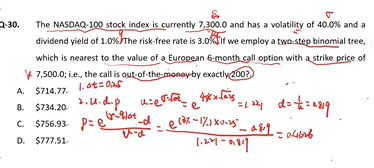 S σ
Q-30. The NASDAQ-100 stock index is currently 7,300.0 and has a volatility of 40.0% and a
dividend yield of 1.0%. The risk-free rate is 3.0%. If we employ a two-step binomial tree,
which is nearest to the value of a European 6-month call option with a strike price of
K 7,500.0; i.e., the call is out-of-the-money by exactly 200?
A. $714.77 1. Δt=0.25
B. $734.20 2. u.d.p u=e^σ√Δt = e^40%×√0.25 = 1.221 d=1/u=0.819
C. $756.93 p= e^(r-q)Δt -d / u-d = e^(3%-1%)×0.25 - 0.819 / 1.221-0.819 =
D. $777.51